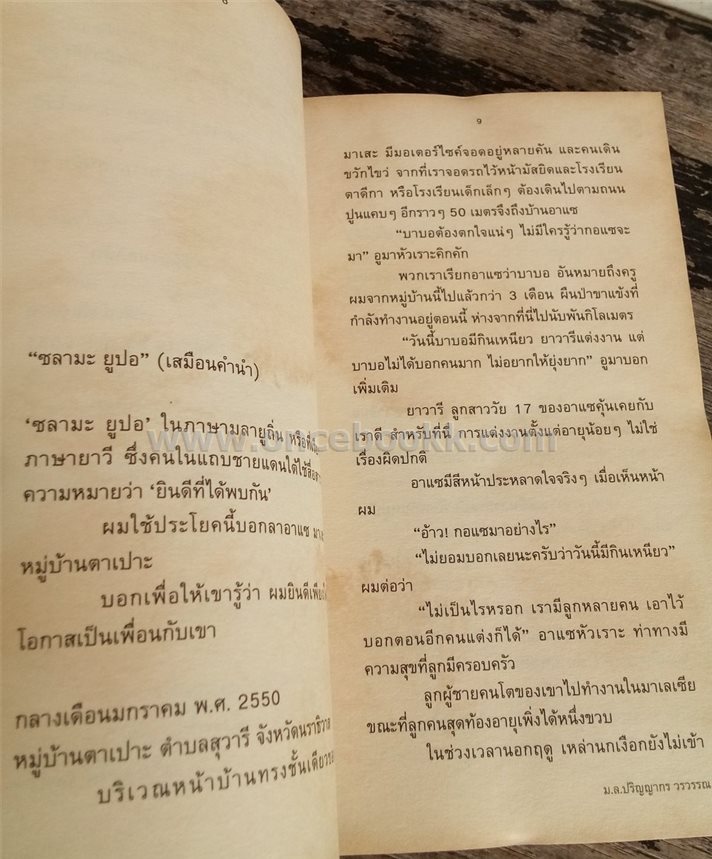 "ซลามะ ยูปอ" (เสมือนคำนำ)
'ซลามะ ยูปอ' ในภาษามลายูถิ่น หรือที่
ภาษายาวี ซึ่งคนในแถบชายแดนใต้ใช้
ความหมายว่า 'ยินดีที่ได้พบกัน'
ผมใช้ประโยคนี้บอกลาอาแซ
หมู่บ้านตาเปาะ
บอกเพื่อให้เขารู้ว่า ผมยินดี
โอกาสเป็นเพื่อนกับเขา
กลางเดือนมกราคม พ.ศ. 2550
หมู่บ้านตาเปาะ ตำบลสุวารี จังหวัดนราธิวาส
บริเวณหน้าบ้านทรงชั้นเดียว
9
มาเสะ มีมอเตอร์ไซค์จอดอยู่หลายคัน และคนเดิน
ขวักไขว่ จากที่เราจอดรถไว้หน้ามัสยิดและโรงเรียน
ตาดีกา หรือโรงเรียนเด็กเล็กๆ ต้องเดินไปตามถนน
ปูนแคบๆ อีกราวๆ 50 เมตรจึงถึงบ้านอาแซ
"บาบอต้องตกใจแน่ๆ ไม่มีใครรู้ว่ากอแซจะ
มา" อูมาหัวเราะคิกคัก
พวกเราเรียกอาแซว่าบาบอ อันหมายถึงครู
ผมจากหมู่บ้านนี้ไปแล้วกว่า 3 เดือน ผืนป่าขาแข้งที่
กำลังทำงานอยู่ตอนนี้ ห่างจากที่นี่ไปนับพันกิโลเมตร
"วันนี้บาบอมีกินเหนียว ยาวารีแต่งงาน แต่
บาบอไม่ได้บอกคนมาก ไม่อยากให้ยุ่งยาก" อูมาบอก
เพิ่มเติม
ยาวารี ลูกสาววัย 17 ของอาแซคุ้นเคยกับ
เราดี สำหรับที่นี่ การแต่งงานตั้งแต่อายุน้อยๆ ไม่ใช่
เรื่องผิดปกติ
อาแซมีสีหน้าประหลาดใจจริงๆ เมื่อเห็นหน้า
ผม
"อ้าว! กอแซมาอย่างไร"
"ไม่ยอมบอกเลยนะครับว่าวันนี้มีกินเหนียว"
ผมต่อว่า
"ไม่เป็นไรหรอก เรามีลูกหลายคน เอาไว้
บอกตอนอีกคนแต่งก็ได้" อาแซหัวเราะ ท่าทางมี
ความสุขที่ลูกมีครอบครัว
ลูกผู้ชายคนโตของเขาไปทำงานในมาเลเซีย
ขณะที่ลูกคนสุดท้องอายุเพิ่งได้หนึ่งขวบ
ในช่วงเวลานอกฤดู เหล่านกเงือกยังไม่เข้า
ม.ล.ปริญญากร วรวรรณ